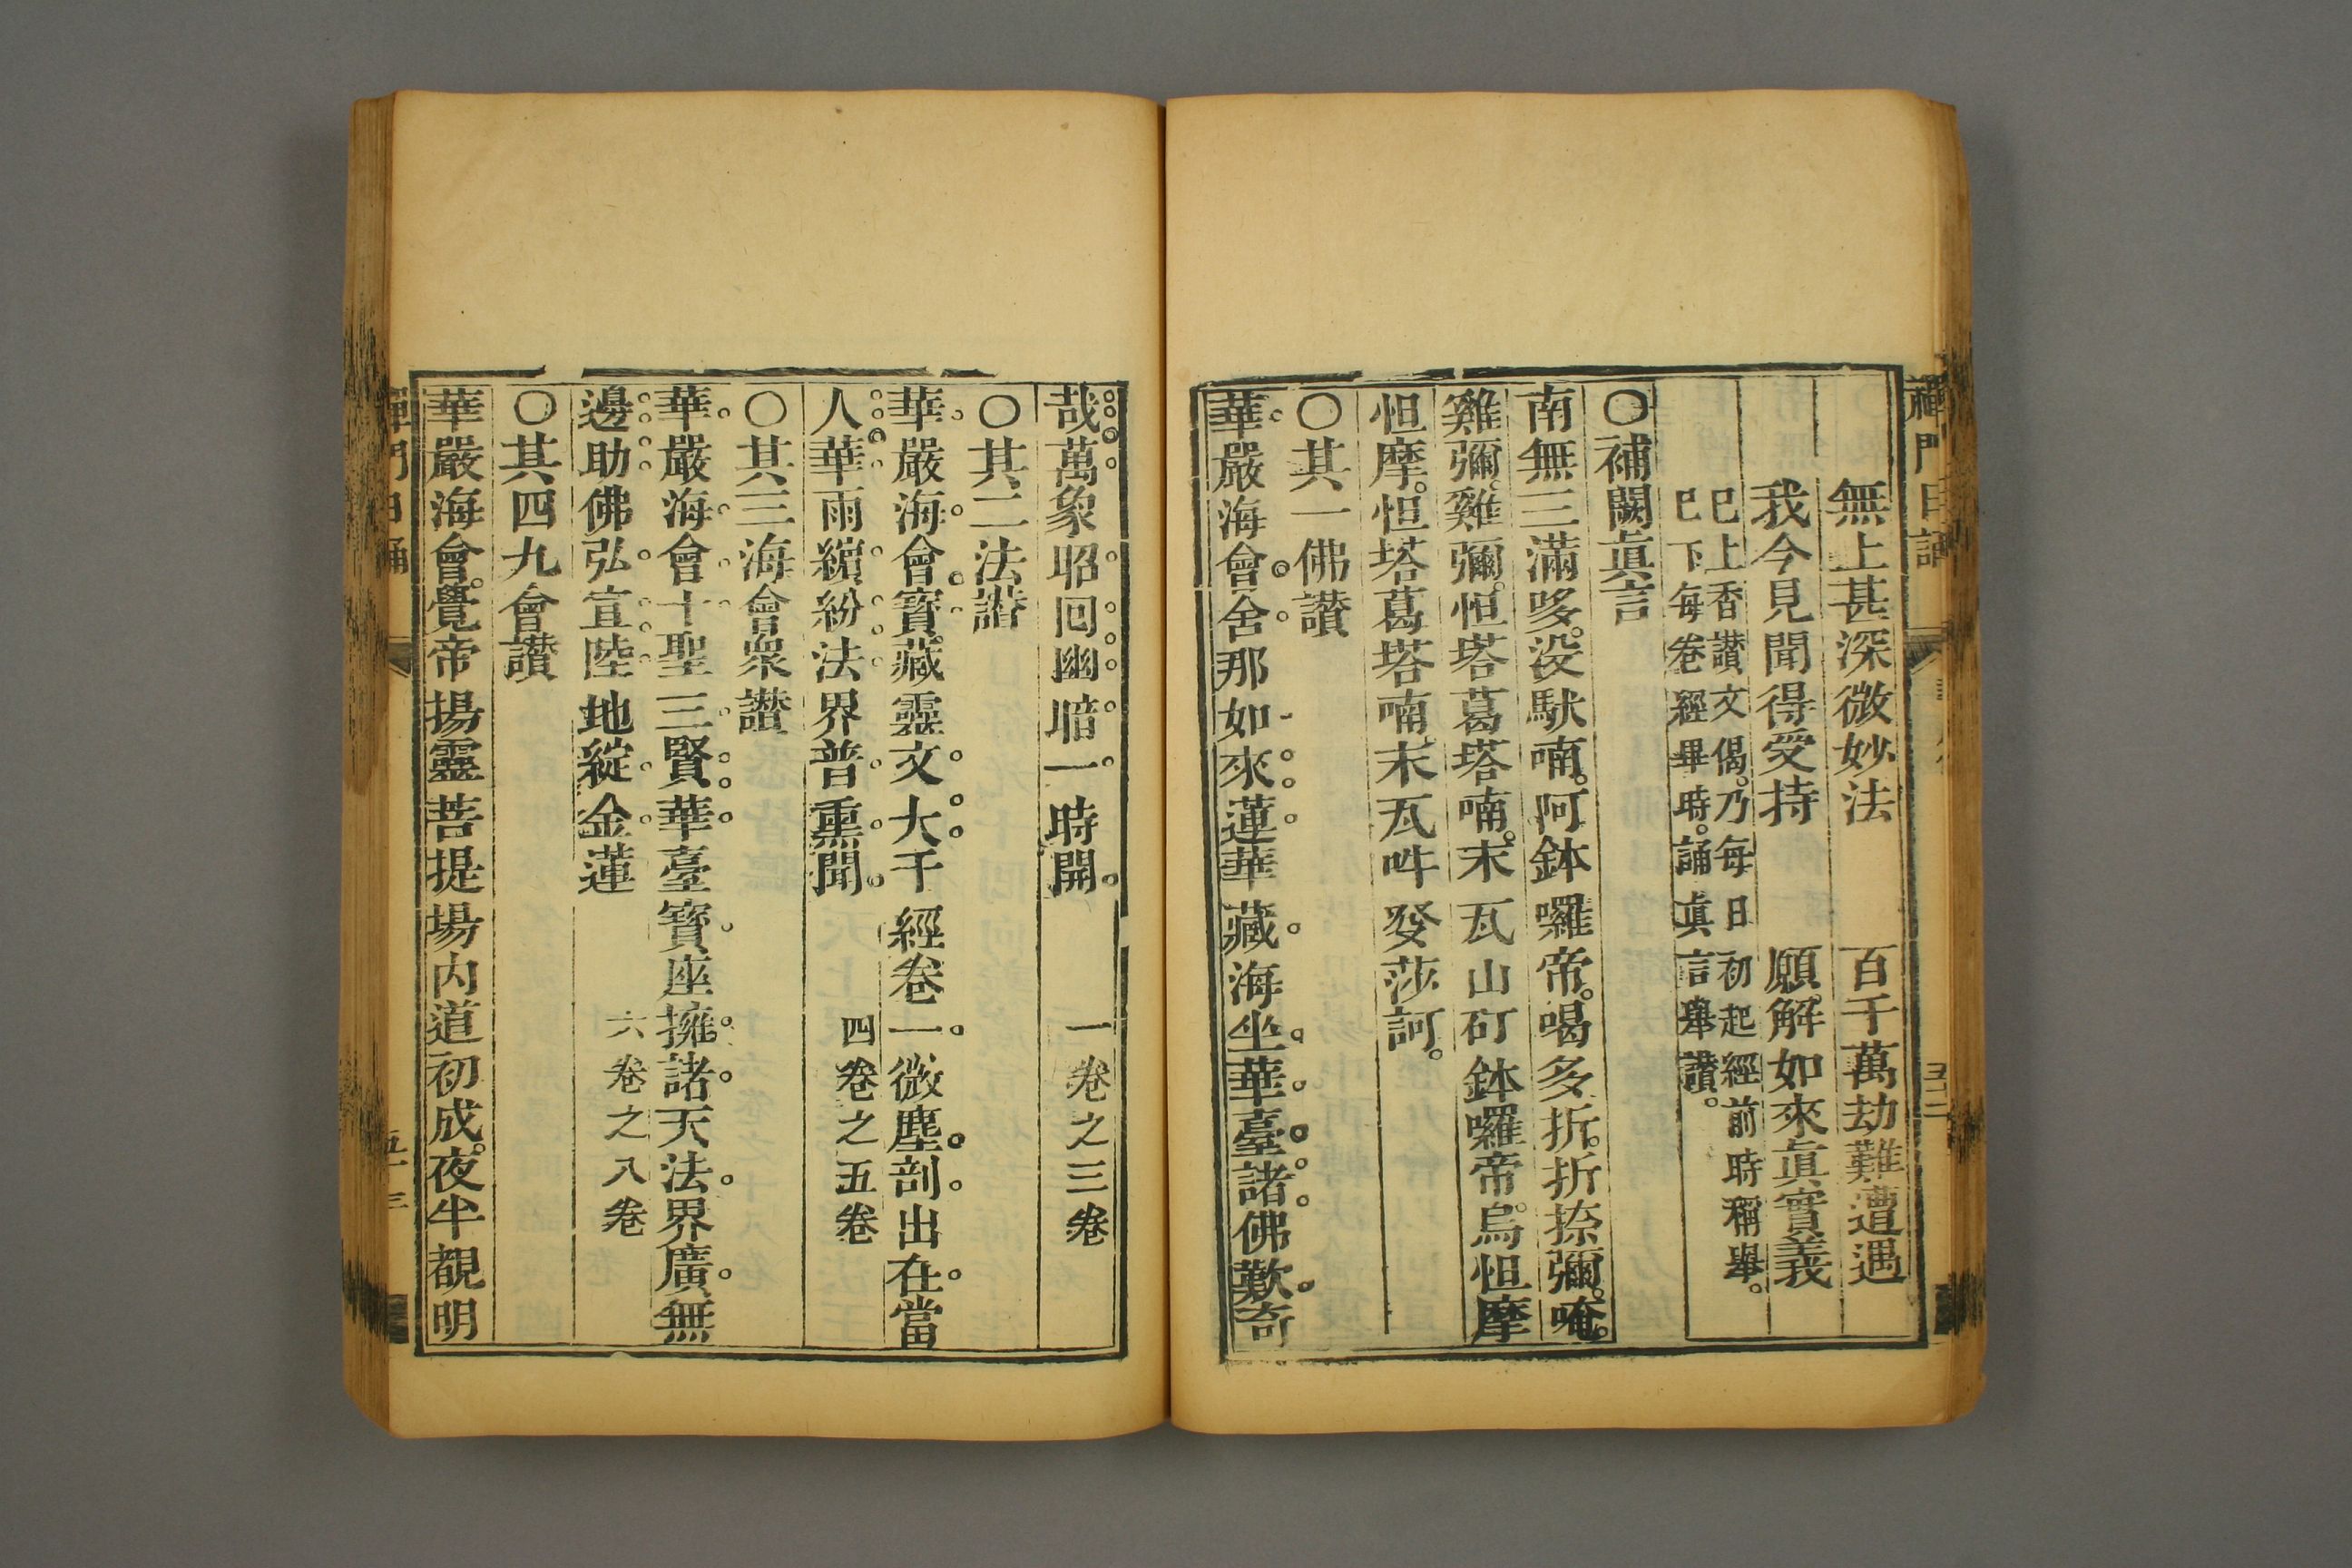 禪門日誦
無上甚深微妙法 百千萬劫難遭遇
我今見聞得受持 願解如來眞實義
巳上香讃文偈。乃每日初起經前時稱舉。
巳下每卷經畢時。誦眞言舉讃。
○補闕眞言
南無三滿哆。沒馱喃。阿鉢囉帝。喝多折。折捺彌。唵。
雞彌。雞彌。怛塔葛塔喃。末瓦山矴鉢囉帝。烏怛摩
怛摩。怛塔葛塔喃。末瓦吽癹莎訶。
○其一佛讃
華嚴海會。舍那如來蓮華藏海坐華臺。諸佛歎奇
哉。萬象昭回幽暗一時開。 一卷之三卷
○其二法讃
華嚴海會。寶藏靈文大千經卷一微塵。剖出在當
人。華雨繽紛法界普熏聞。 四卷之五卷
○其三海會衆讃
華嚴海會十聖三賢華臺寶座擁諸天。法界廣無
邊。助佛弘宣陸地綻金蓮 六卷之八卷
○其四九會讃
華嚴海會。覺帝揚靈菩提場內道初成。夜半覩明
禪門日誦